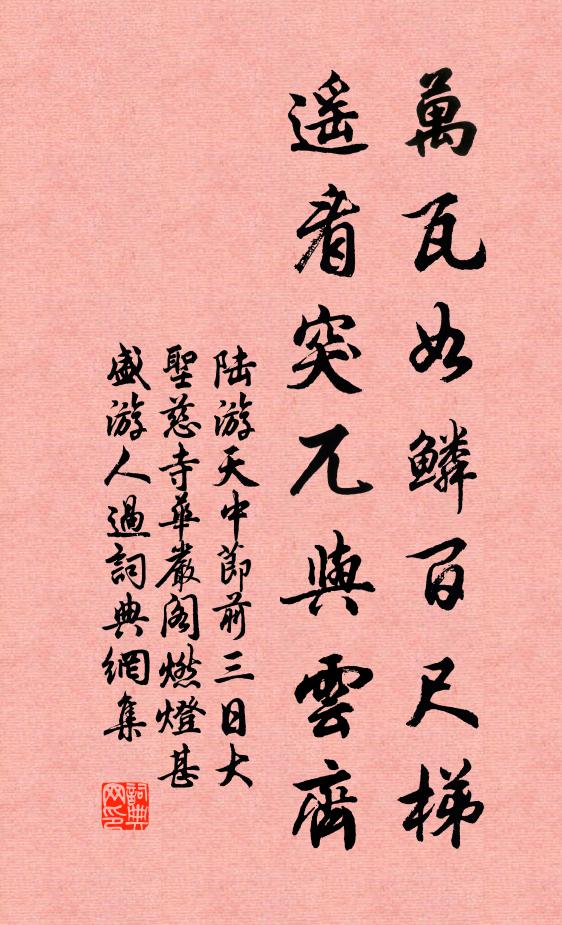 萬瓦如鱗百尺梯
遥看突兀與雲齊
陸游天中節前三日大
聖慈寺華嚴閣燃燈甚
盛游人過詞典網集
詞典网印